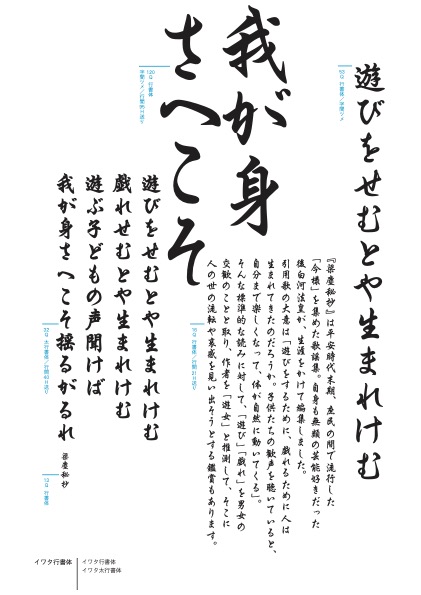 遊びをせむとや生まれけむ
53Q 行書体/字間ツメ
我が身
さへこそ
120Q 行書体
字間ツメ/行間95H送り
『梁塵秘抄』は平安時代末期、庶民の間で流行した
「今様」を集めた歌謡集。自身も無類の芸能好きだった
後白河法皇が、生涯をかけて編集しました。
引用歌の大意は「遊びをするために、戯れるために人は
生まれてきたのだろうか。子供たちの歓声を聴いていると、
自分まで楽しくなって、体が自然に動いてくる」。
そんな標準的な読みに対して、「遊び」「戯れ」を男女の
交歓のことと取り、作者を「遊女」と推測して、そこに
人の世の流転や哀感を見い出そうとする鑑賞もあります。
16Q 行書体/行間21H送り
遊びをせむとや生まれけむ
戯れせむとや生まれけむ
遊ぶ子どもの声聞けば
我が身さへこそ揺るがるれ
梁塵秘抄
22Q 太行書体/行間40H送り
13Q 行書体
イワタ行書体
イワタ行書体
イワタ太行書体